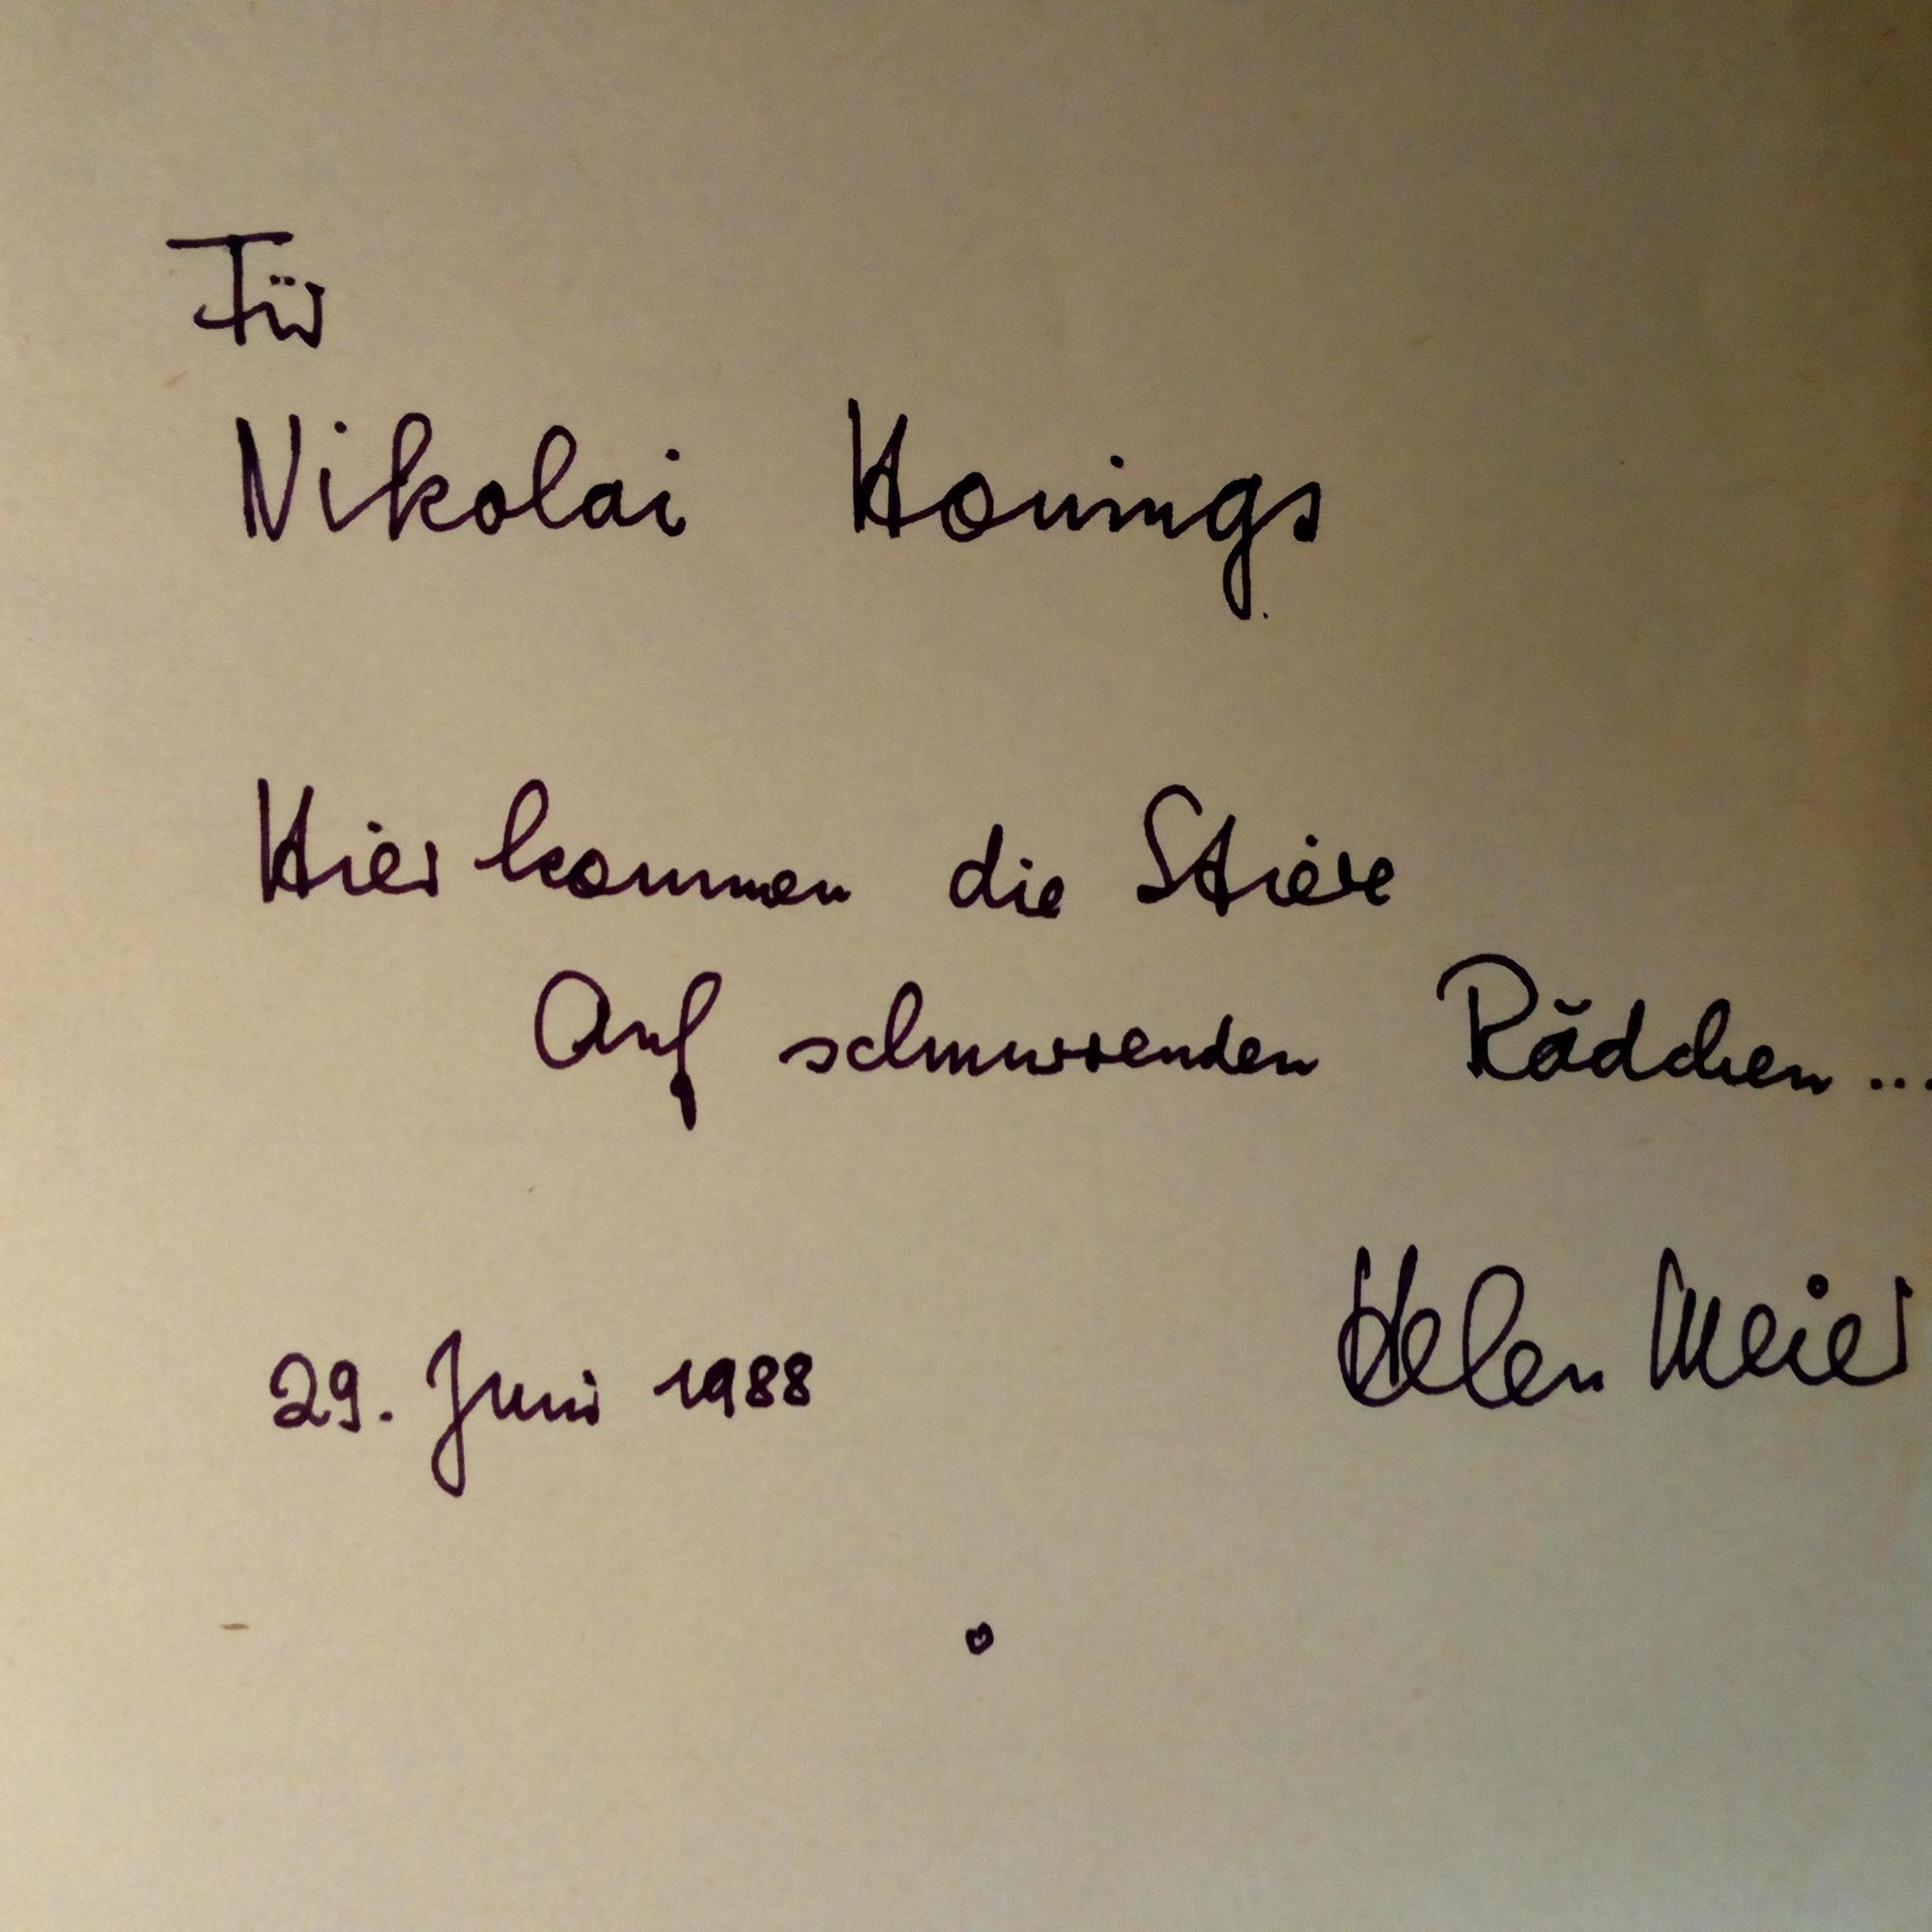 Für
Nikolai Honings
Hier kommen die Stiere
Auf schnurrenden Rädchen...
Helen Meier
29. Juni 1988